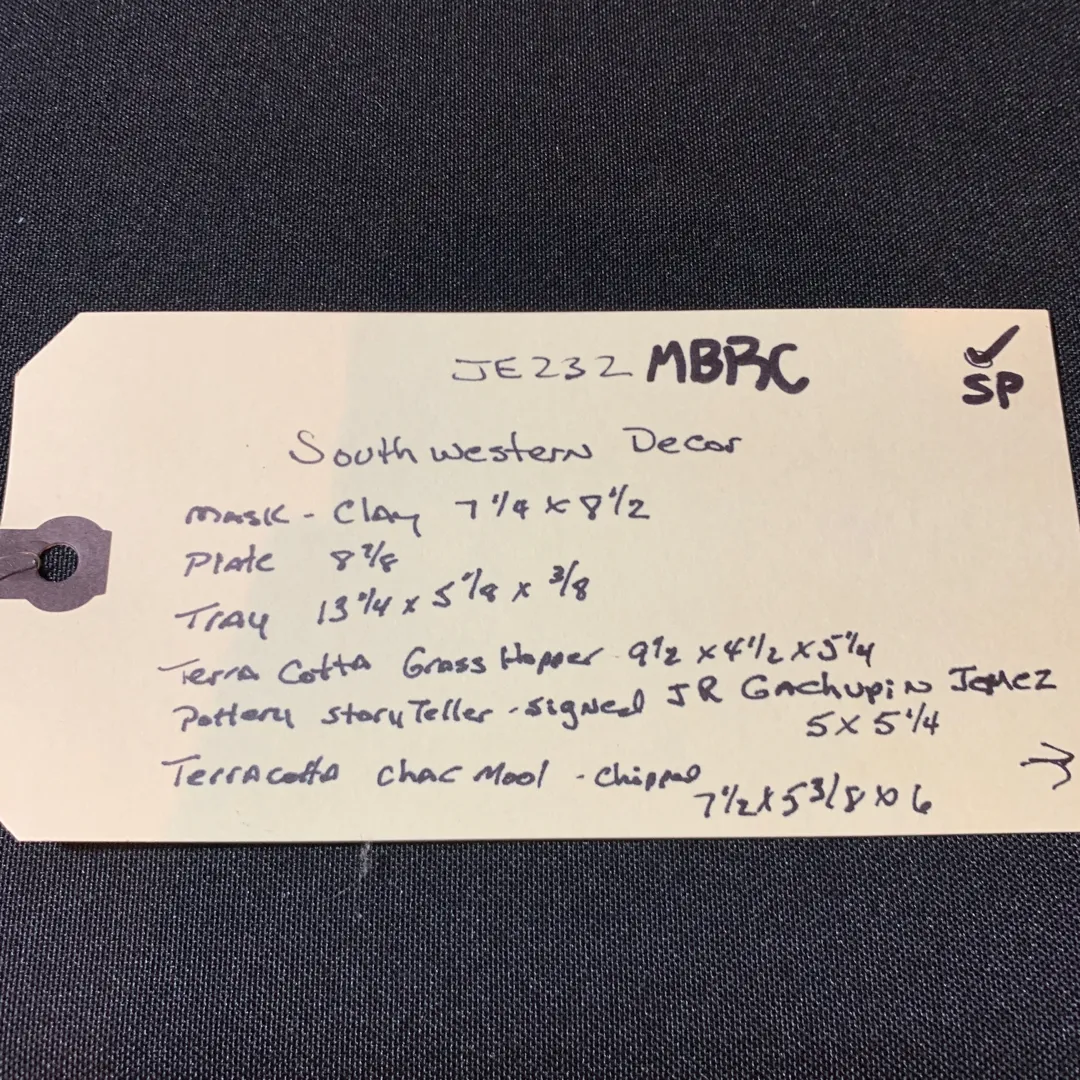 JE232 MBRC ✓
SP
Southwestern Decor
Mask - Clay 7 1/4 x 8 1/2
Plate 8 7/8
Tray 13 1/4 x 5 7/8 x 3/8
Terra Cotta Grass Hopper - 9 1/2 x 4 1/2 x 5 1/4
Pottery story Teller - signed JR Gachupin Jemez
5 x 5 1/4
Terracotta chac Mool - chipped
7 1/2 x 5 3/8 x 6
→